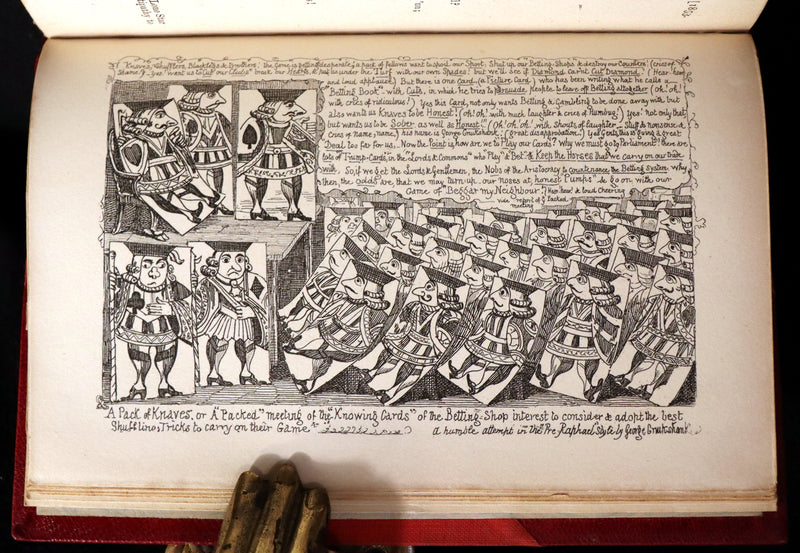 1854
Knaves, Shufflers, Blacklegs & Brothers! the Game is getting desperate, a pack of fellows want to spoil our Sport. Shut up our Betting-Shops & destroy our Counters! (cries of
Shame!) yes! want us to Cut our Clubs break our Hearts, & put us under the Turf with our own Spades! but we'll see if Diamond can't Cut Diamond! (Hear hear
and loud applause) But there is one Card, (a Picture Card) who has been writing what he calls a
"Betting Book" with Cuts, in which he tries to persuade people to leave off Betting altogether (oh! oh!
with cries of ridiculous!) Yes this Card, not only wants Betting & Gambling to be done away with, but
also wants us Knaves to be Honest! (oh! oh! with much laughter & cries of Humbug!) Yes! not only that
but wants us to be Sober as well as Honest!! (oh! oh! oh! with shouts of laughter — Stuff & nonsense &
cries of name, name,) his name is George Cruikshank. (great disapprobation) Yes Gents this is going a great
Deal too far for us. Now the Point is, how are we to Play our Cards? Why we must go to Parliament! there are
lots of Trump-Cards, in the "Lords & Commons" who Play & Bet & Keep the Horses that we carry on our trade
with. So, if we get the Lords & Gentlemen, the Nobs of the Aristocracy to countenance the Betting system why
then the odds are, that we may turn up our noses at honest Pumps & go on with our
Game of Beggar my Neighbour! (Hear hear! & loud Cheering
vide report of Packed
meeting
"A Pack of Knaves", or A "Packed" meeting of the "Knowing Cards" of the Betting-Shop interest to consider & adopt the best
Shuffling Tricks to carry on their Game
a humble attempt in the "Pre-Raphael" Style by George Cruikshank